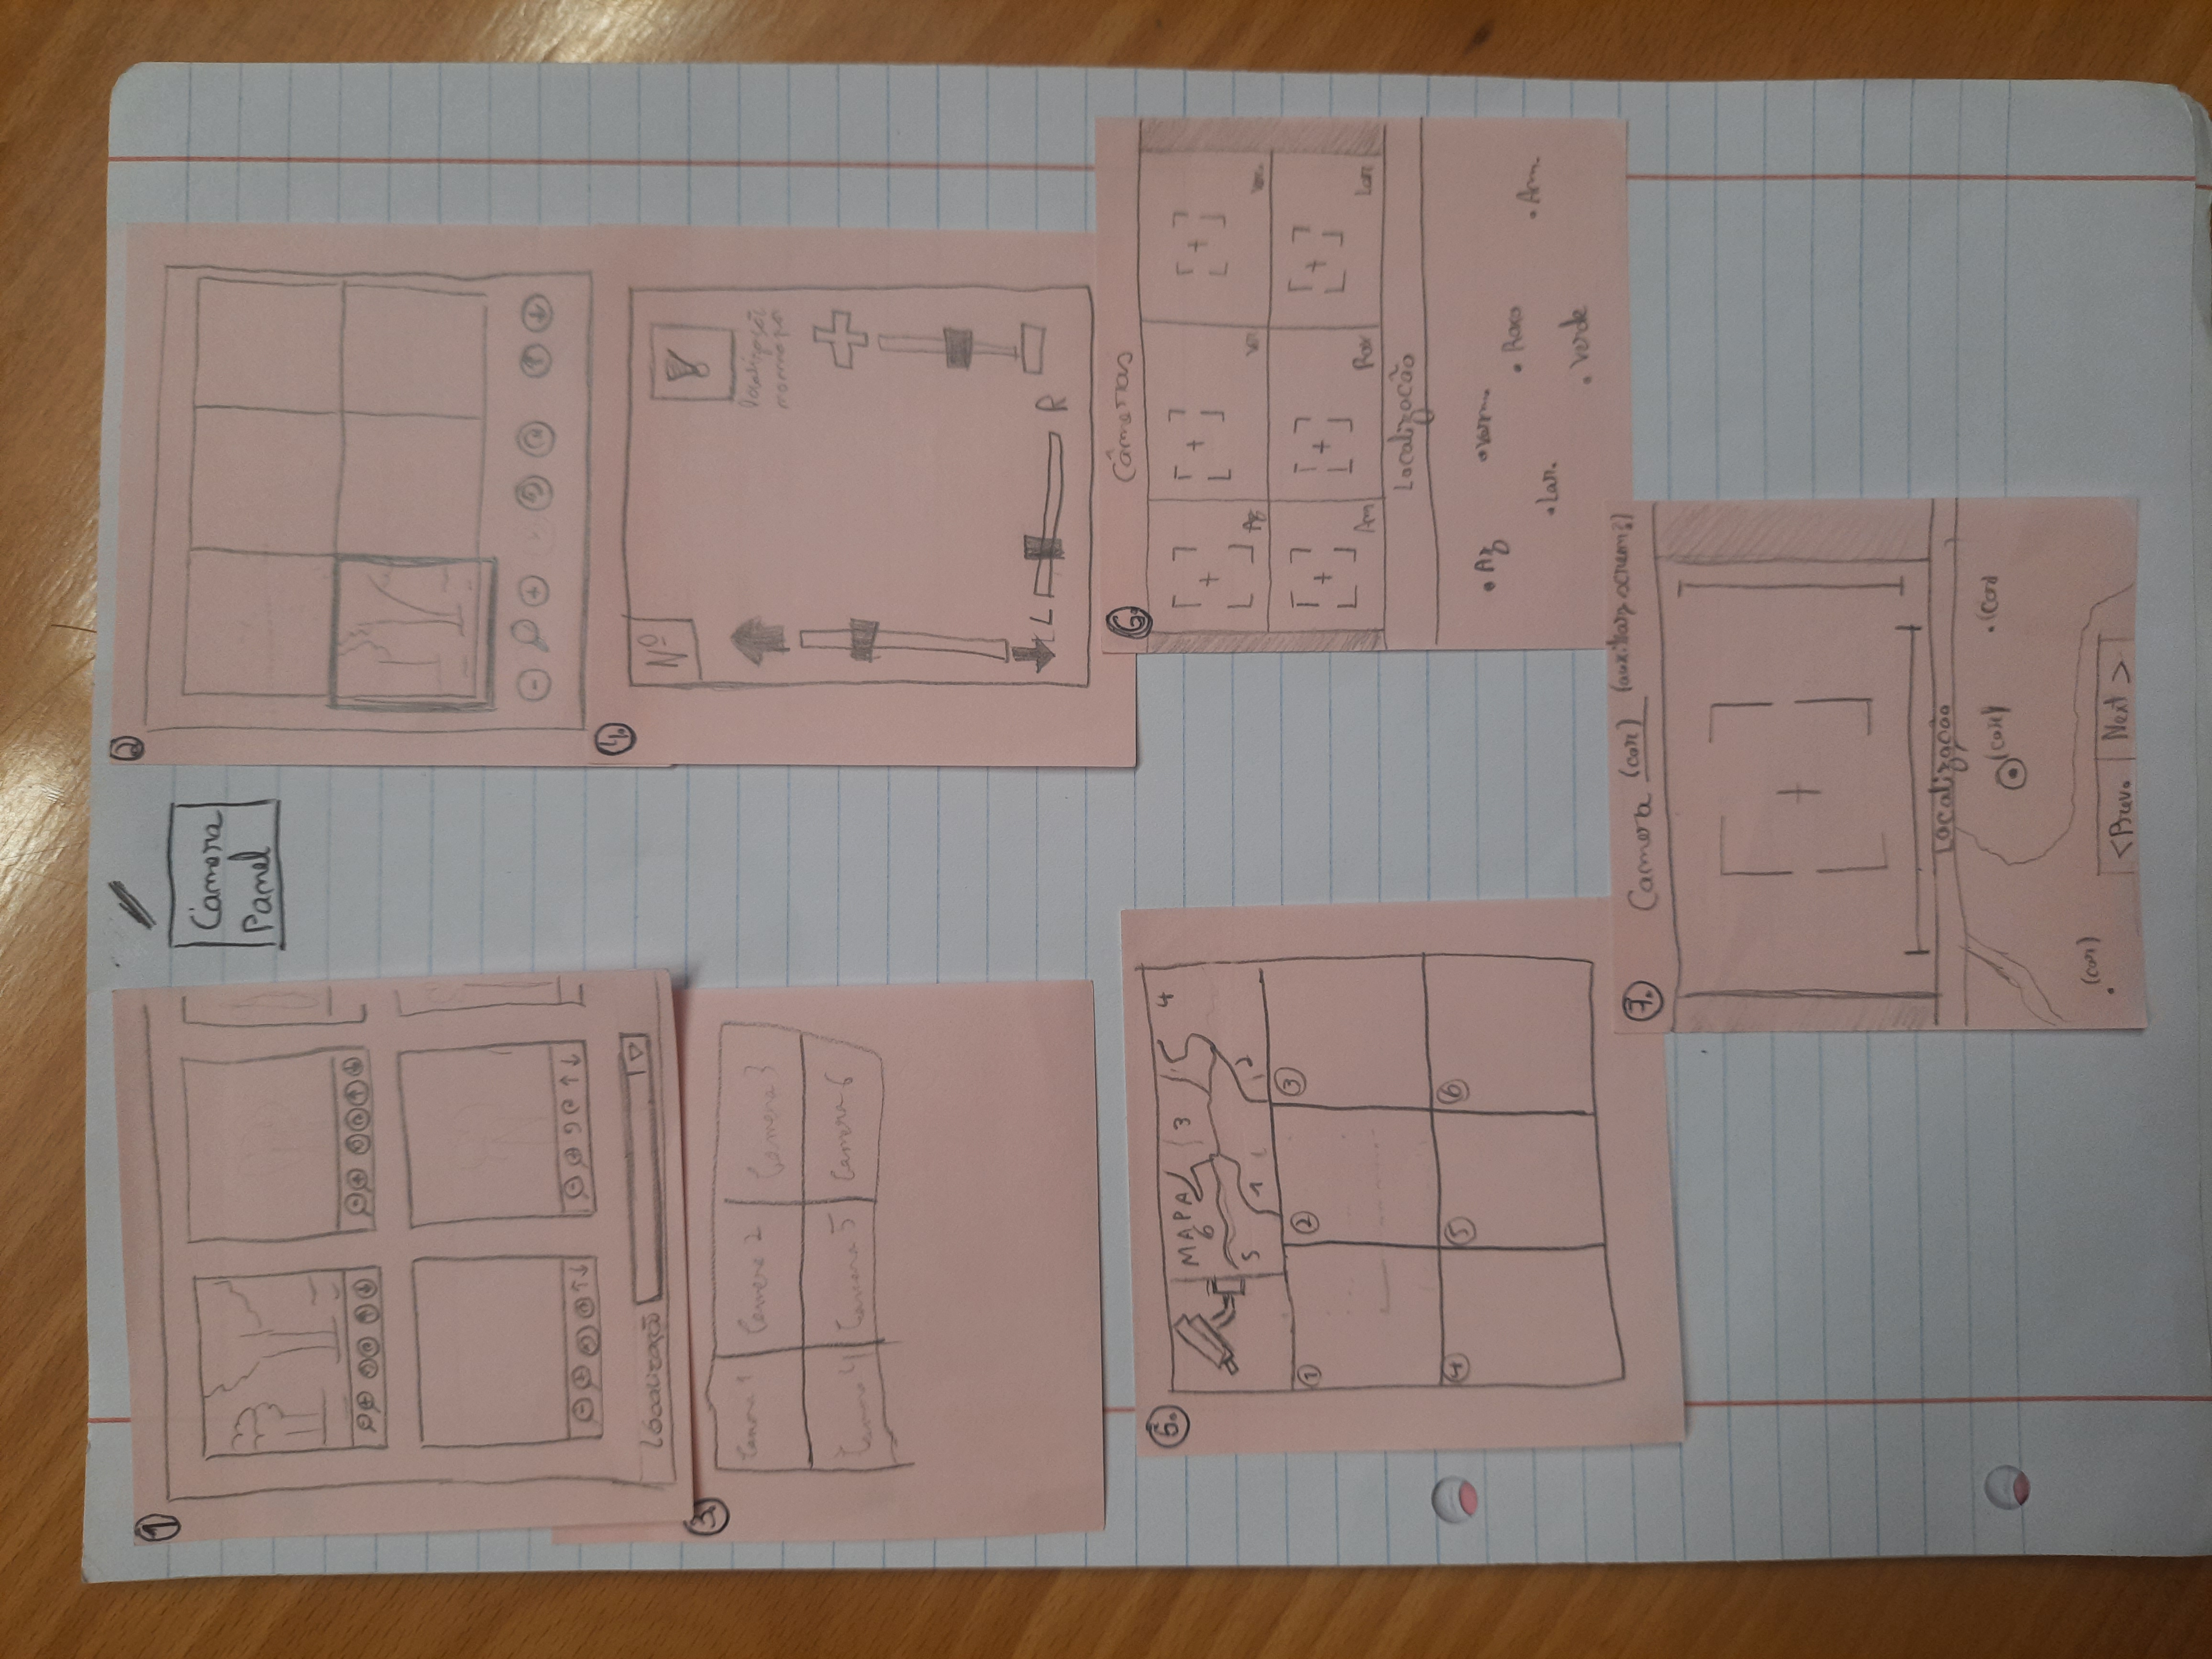 1
Câmera
Panel
2
Localização
3.
Camera 1 Camera 2 Camera 3
Camera 4 Camera 5 Camera 6
4.
Nº
localização
no mapa
L R
5.
MAPA
6 3 4
5 1 2
1 2 3
4 5 6
6.
Câmeras
Az Ver. Verm.
Am Rox Lar
Localização
Az Verm.
Roxo
Lar. Am.
Verde
7.
Camera (cor) (auxiliary screen?)
Localização
(cor) (cor)
(cor)
<Prev. Next >